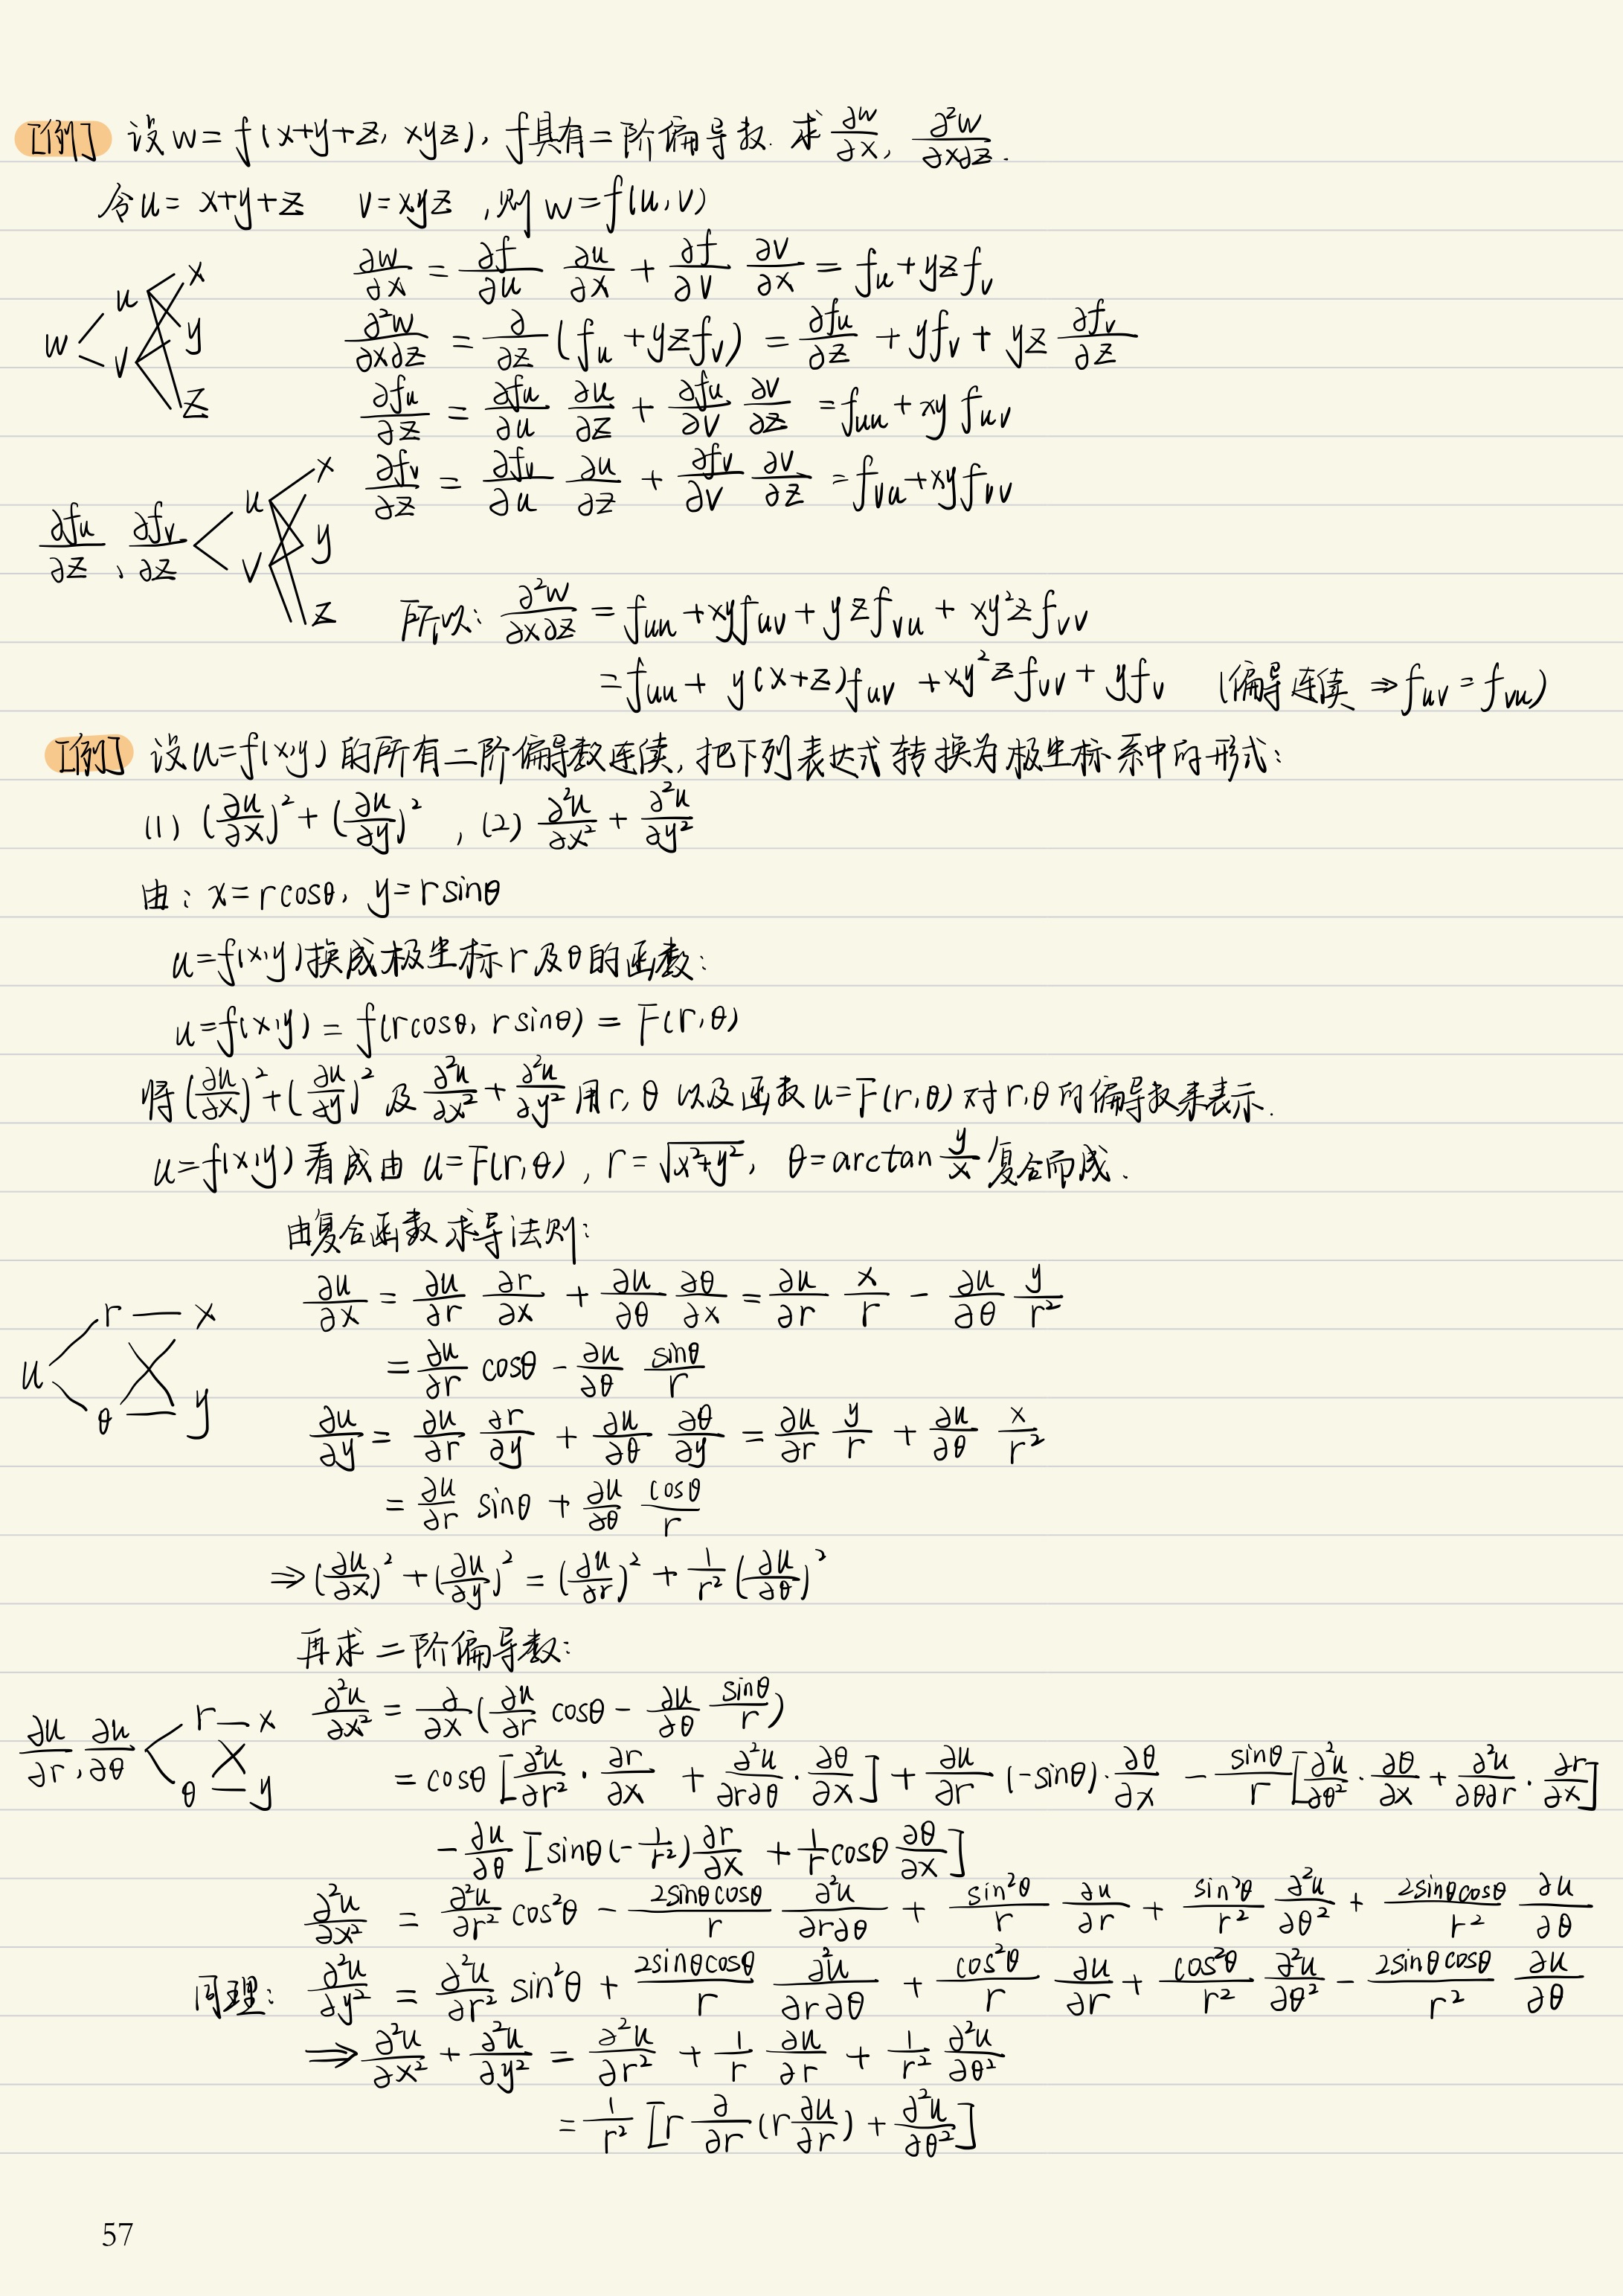 [例] 设 w = f(x+y+z, xyz), f具有二阶偏导数. 求 ∂w/∂x, ∂²w/∂x∂z.
令 u = x+y+z  v = xyz, 则 w = f(u,v)
∂w/∂x = ∂f/∂u ∂u/∂x + ∂f/∂v ∂v/∂x = f_u + yz f_v
w u v x y z
∂²w/∂x∂z = ∂/∂z (f_u + yz f_v) = ∂f_u/∂z + y f_v + yz ∂f_v/∂z
∂f_u/∂z = ∂f_u/∂u ∂u/∂z + ∂f_u/∂v ∂v/∂z = f_uu + xy f_uv
∂f_v/∂z = ∂f_v/∂u ∂u/∂z + ∂f_v/∂v ∂v/∂z = f_vu + xy f_vv
∂f_u/∂z、∂f_v/∂z u v x y z
所以: ∂²w/∂x∂z = f_uu + xy f_uv + yz f_vu + xy²z f_vv
= f_uu + y(x+z) f_uv + xy²z f_vv + y f_v  (偏导连续 ⇒ f_uv = f_vu)
[例] 设 u=f(x,y) 的所有二阶偏导数连续, 把下列表达式转换为极坐标系中的形式:
(1) (∂u/∂x)² + (∂u/∂y)², (2) ∂²u/∂x² + ∂²u/∂y²
由: x = rcosθ, y = rsinθ
u=f(x,y)换成极坐标 r 及 θ 的函数:
u=f(x,y) = f(rcosθ, rsinθ) = F(r,θ)
将 (∂u/∂x)² + (∂u/∂y)² 及 ∂²u/∂x² + ∂²u/∂y² 用 r, θ 以及函数 u=F(r,θ) 对 r,θ 的偏导数来表示.
u=f(x,y) 看成由 u=F(r,θ), r=√(x²+y²), θ=arctan y/x 复合而成.
由复合函数求导法则:
∂u/∂x = ∂u/∂r ∂r/∂x + ∂u/∂θ ∂θ/∂x = ∂u/∂r x/r − ∂u/∂θ y/r²
u r θ x y
= ∂u/∂r cosθ − ∂u/∂θ sinθ/r
∂u/∂y = ∂u/∂r ∂r/∂y + ∂u/∂θ ∂θ/∂y = ∂u/∂r y/r + ∂u/∂θ x/r²
= ∂u/∂r sinθ + ∂u/∂θ cosθ/r
⇒ (∂u/∂x)² + (∂u/∂y)² = (∂u/∂r)² + 1/r² (∂u/∂θ)²
再求二阶偏导数:
∂²u/∂x² = ∂/∂x (∂u/∂r cosθ − ∂u/∂θ sinθ/r)
∂u/∂r, ∂u/∂θ r θ x y
= cosθ [∂²u/∂r² · ∂r/∂x + ∂²u/∂r∂θ · ∂θ/∂x] + ∂u/∂r (−sinθ) · ∂θ/∂x − sinθ/r [∂²u/∂θ² · ∂θ/∂x + ∂²u/∂θ∂r · ∂r/∂x]
− ∂u/∂θ [sinθ(−1/r²) ∂r/∂x + 1/r cosθ ∂θ/∂x]
∂²u/∂x² = ∂²u/∂r² cos²θ − 2sinθcosθ/r ∂²u/∂r∂θ + sin²θ/r ∂u/∂r + sin²θ/r² ∂²u/∂θ² + 2sinθcosθ/r² ∂u/∂θ
同理: ∂²u/∂y² = ∂²u/∂r² sin²θ + 2sinθcosθ/r ∂²u/∂r∂θ + cos²θ/r ∂u/∂r + cos²θ/r² ∂²u/∂θ² − 2sinθcosθ/r² ∂u/∂θ
⇒ ∂²u/∂x² + ∂²u/∂y² = ∂²u/∂r² + 1/r ∂u/∂r + 1/r² ∂²u/∂θ²
= 1/r² [r ∂/∂r (r ∂u/∂r) + ∂²u/∂θ²]
57